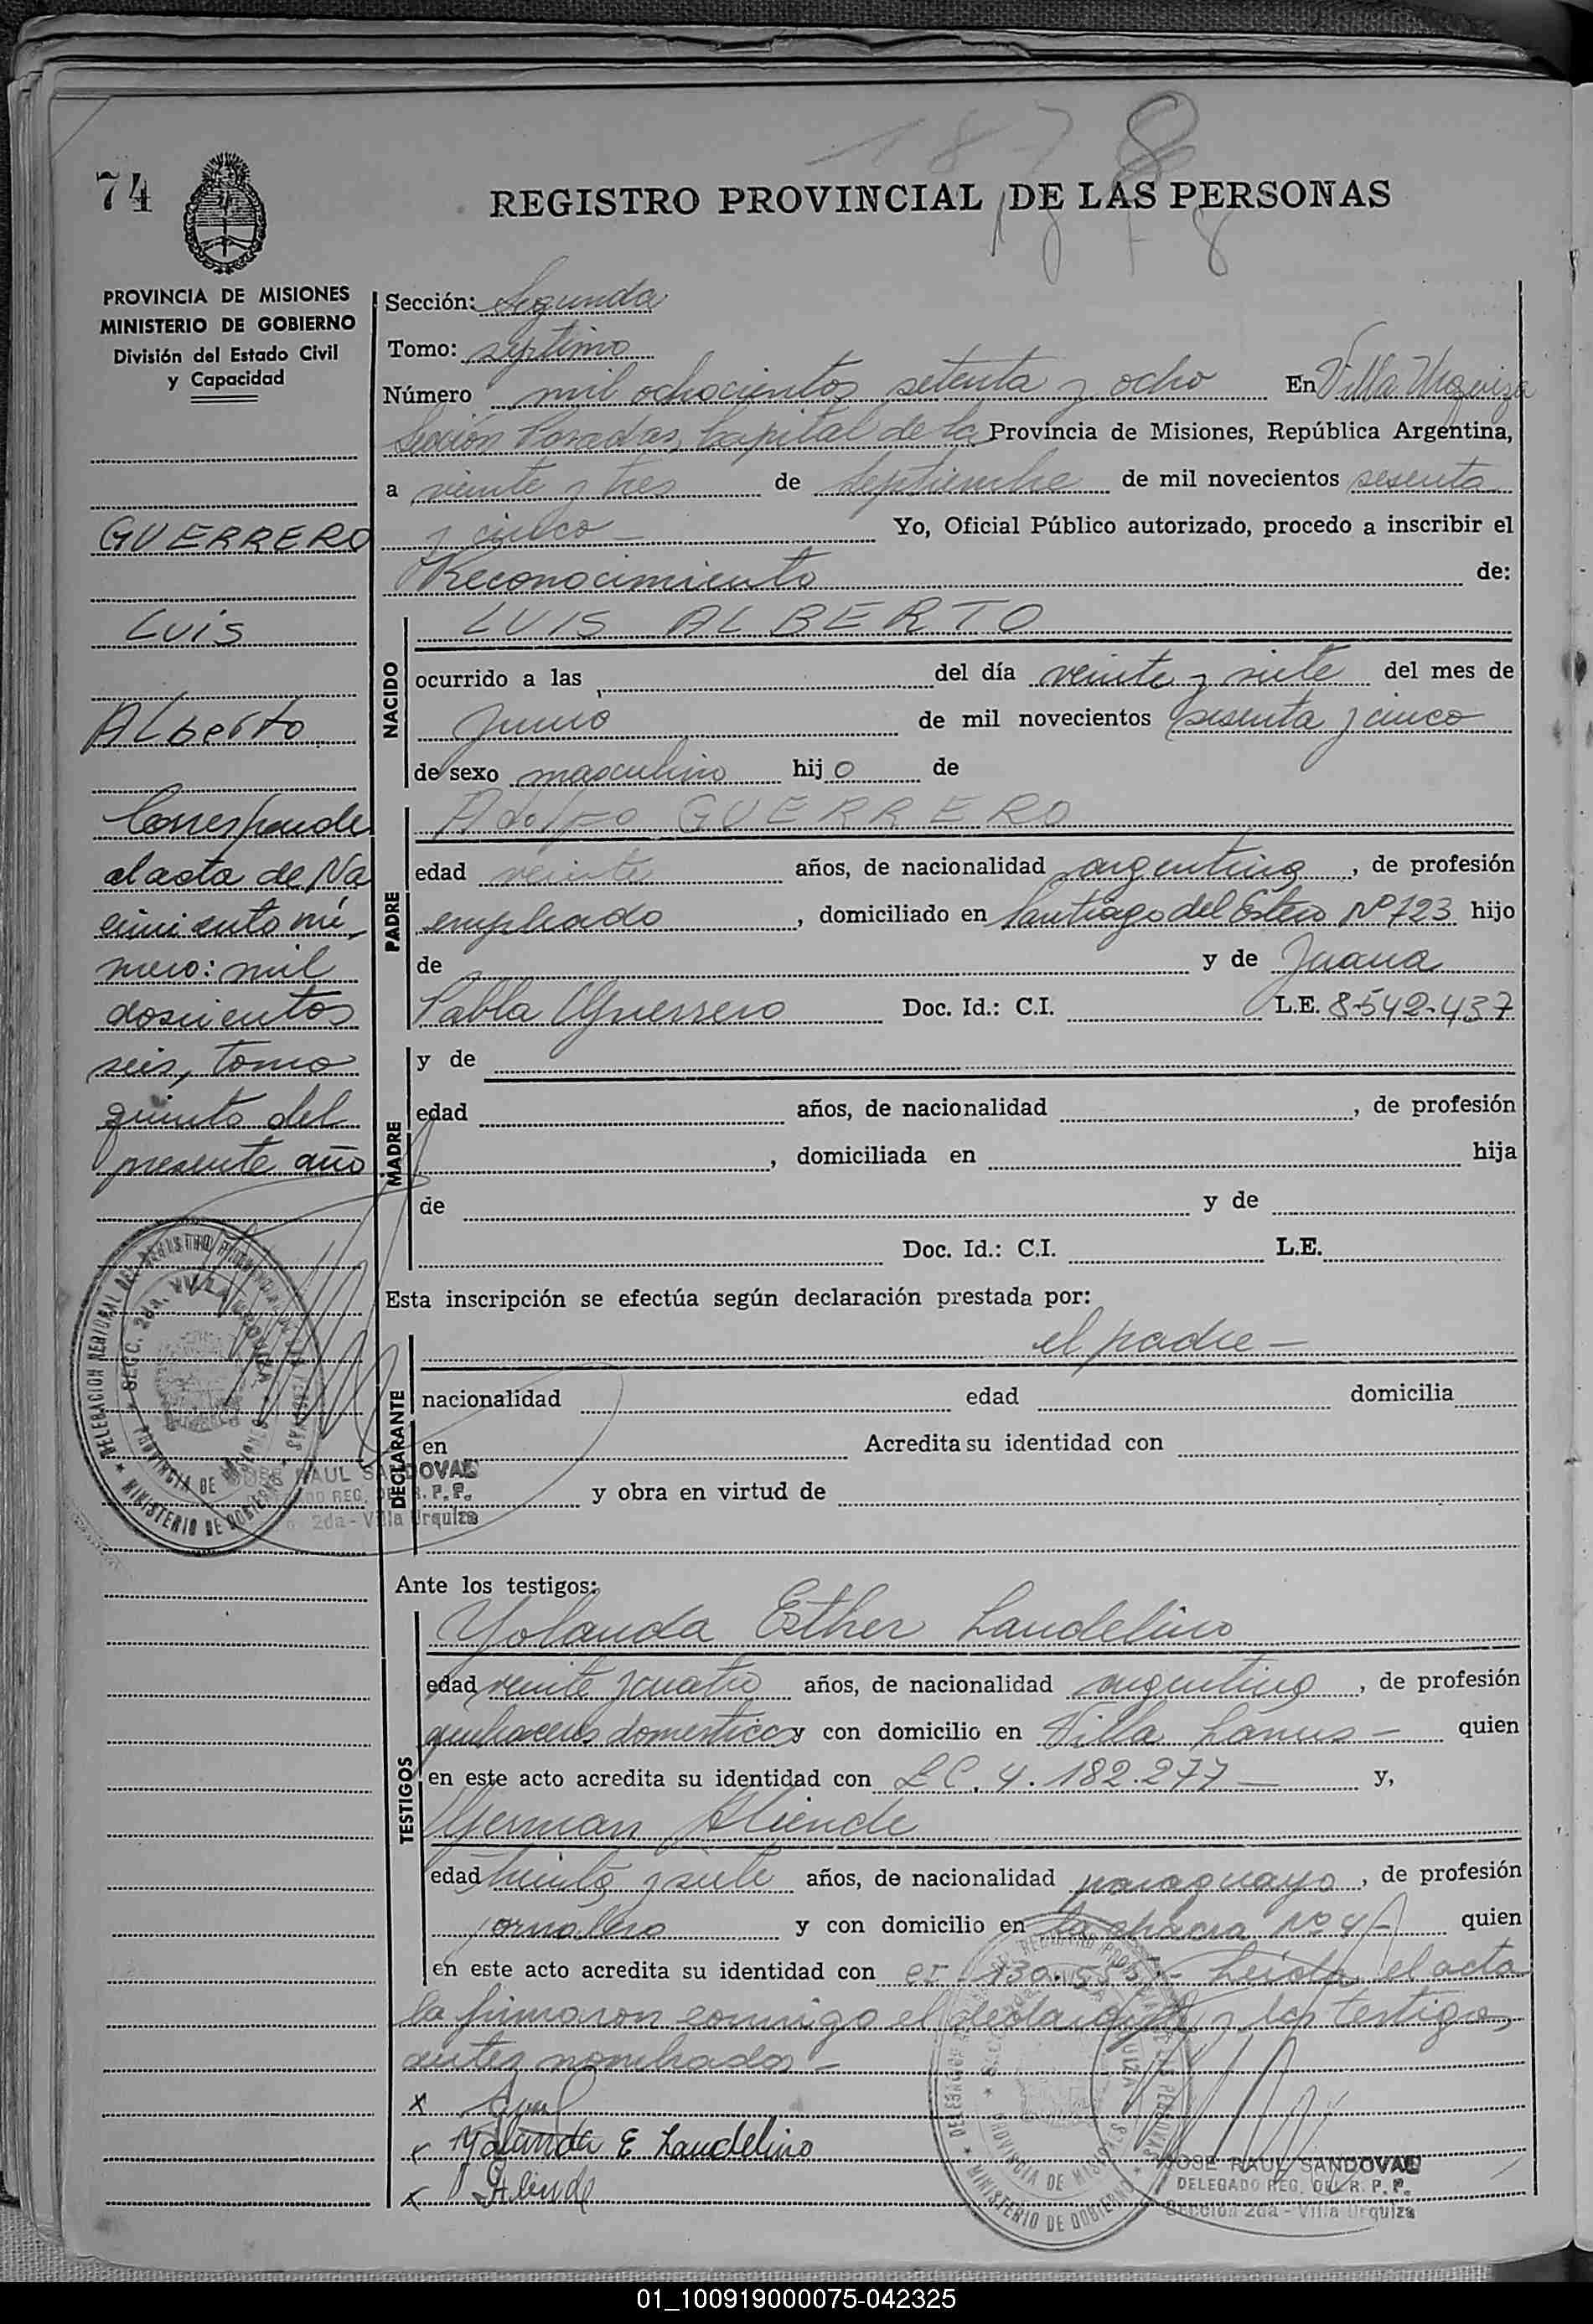 1878
74
REGISTRO PROVINCIAL DE LAS PERSONAS
1878
PROVINCIA DE MISIONES
MINISTERIO DE GOBIERNO
División del Estado Civil
y Capacidad
GUERRERO
Luis
Alberto
Corresponde
al acta de Na
cimiento nú-
mero: mil
doscientos
seis, tomo
quinto del
presente año
DELEGACION REGIONAL DEL REGISTRO PROVINCIAL DE LAS PERSONAS
SECC. 2da. VILLA URQUIZA
PROVINCIA DE MISIONES
MINISTERIO DE GOBIERNO
JOSE RAUL SANDOVAL
DELEGADO REG. DEL R. P. P.
2da - Villa Urquiza
Sección: Segunda
Tomo: séptimo
Número mil ochocientos setenta y ocho En Villa Urquiza
Sección Posadas, Capital de la Provincia de Misiones, República Argentina,
a veinte y tres de septiembre de mil novecientos sesenta
y cinco - Yo, Oficial Público autorizado, procedo a inscribir el
Reconocimiento de:
NACIDO
LUIS ALBERTO
ocurrido a las del día veinte y siete del mes de
Junio de mil novecientos sesenta y cinco
de sexo masculino hijo de
PADRE
Adolfo GUERRERO
edad veinte años, de nacionalidad argentino, de profesión
empleado, domiciliado en Santiago del Estero Nº 723 hijo
de y de Juana
Pabla Guerrero Doc. Id.: C.I. L.E. 8.542.437
MADRE
y de
edad años, de nacionalidad , de profesión
, domiciliada en hija
de y de
Doc. Id.: C.I. L.E.
Esta inscripción se efectúa según declaración prestada por:
DECLARANTE
el padre -
nacionalidad edad domicilia
en Acredita su identidad con
y obra en virtud de
Ante los testigos:
TESTIGOS
Yolanda Esther Laudelino
edad veinte y cuatro años, de nacionalidad argentino, de profesión
quehaceres domesticos y con domicilio en Villa Lanus - quien
en este acto acredita su identidad con LC. 4.182.277 - y,
German Aliende
edad y siete años, de nacionalidad paraguayo, de profesión
jornalero y con domicilio en la chacra Nº 4 - quien
en este acto acredita su identidad con CI - Leída el acta
la firmaron conmigo el declarante y los testigos
antes nombrados -
x
x Yolanda E Laudelino
x Aliende
DELEGACION REGIONAL DEL REGISTRO PROVINCIAL DE LAS PERSONAS
PROVINCIA DE MISIONES
MINISTERIO DE GOBIERNO
JOSE RAUL SANDOVAL
DELEGADO REG. DEL R. P. P.
Sección 2da - Villa Urquiza
01_100919000075-042325